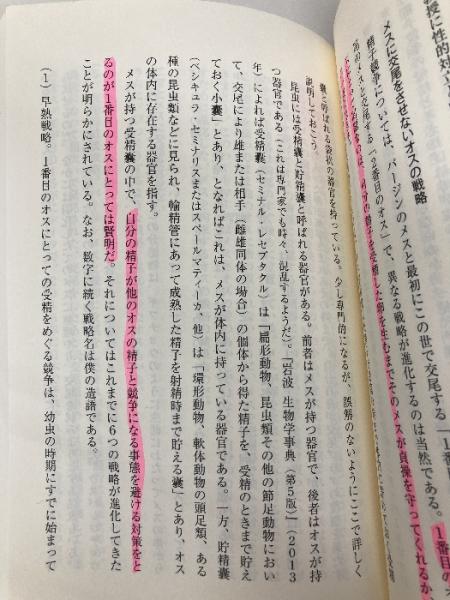 授に性的対
メスに交尾をさせないオスの戦略
精子競争については、バージンのメスと最初にこの世で交尾する「1番目の
のメスと交尾する「2番目のオス」で、異なる戦略が進化するのは当然である。1番目の
を受精した卵を生むまでそのメスが貞操を守ってくれるか
嚢と呼ばれる袋状の器官を持っている。少し専門的になるが、誤解のないようにここで詳しく
説明しておこう。
昆虫には受精嚢と貯精嚢と呼ばれる器官がある。前者はメスが持つ器官で、後者はオスが持
つ器官である（これは専門家でも時々、混乱するようだ）。『岩波 生物学事典（第5版）』（2013
年）によれば受精嚢（セミナル・レセプタクル）は「扁形動物、昆虫類その他の節足動物におい
て、交尾により雄または相手（雌雄同体の場合）の個体から得た精子を、受精のときまで貯え
ておく小嚢」とあり、となればこれは、メスが体内に持っている器官である。一方、貯精嚢
（ベシキュラ・セミナリスまたはスペールマティーカ、他）は「環形動物、軟体動物の頭足類、ある
種の昆虫類などに見られ、輸精管にあって成熟した精子を射精時まで貯える嚢」とあり、オス
の体内に存在する器官を指す。
メスが持つ受精嚢の中で、自分の精子が他のオスの精子と競争になる事態を避ける対策をと
るのが1番目のオスにとっては賢明だ。それについてはこれまでに6つの戦略が進化してきた
ことが明らかにされている。なお、数字に続く戦略名は僕の造語である。
（1）早熟戦略。1番目のオスにとっての受精をめぐる競争は、幼虫の時期にすでに始まって